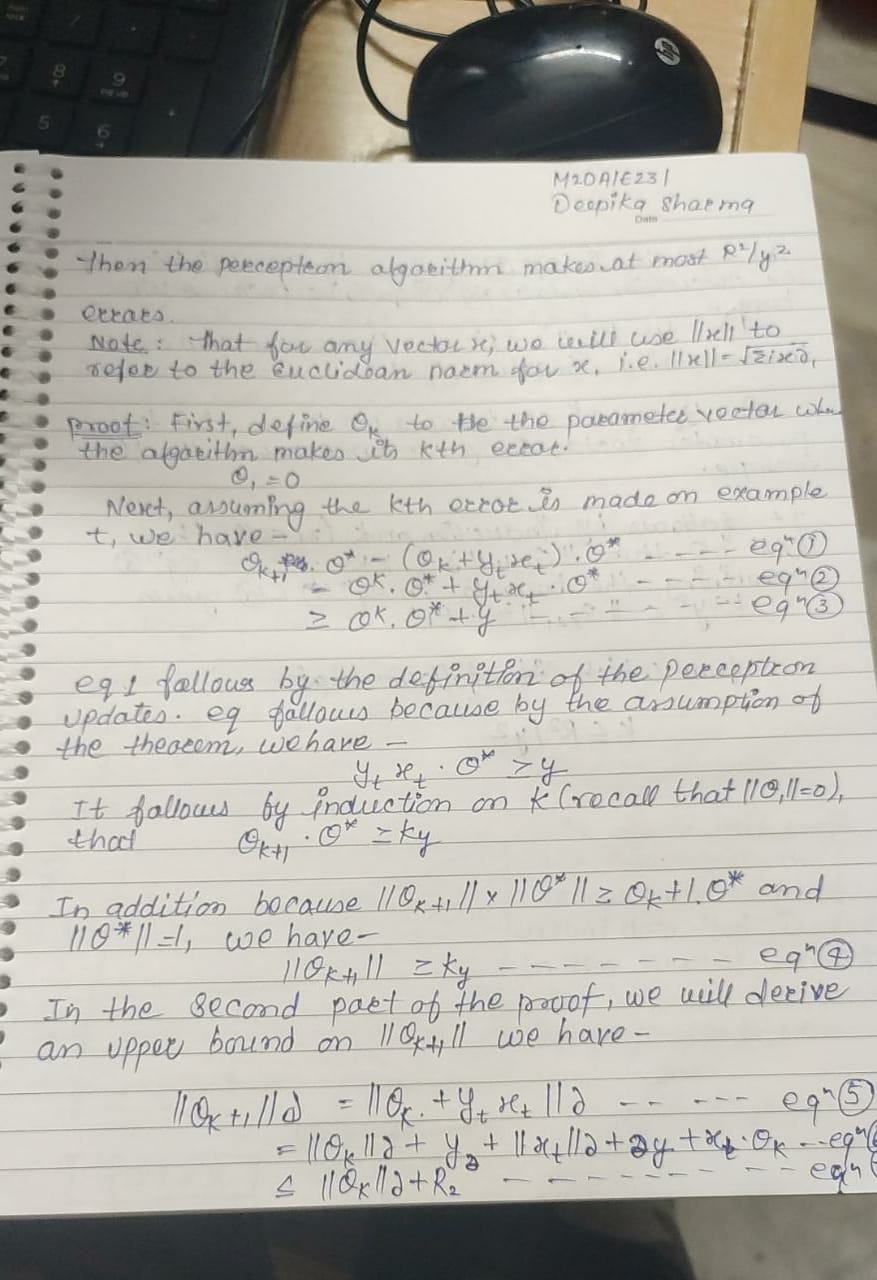 8
9
5
6
hp
M2DA1E231
Deepika Sharma
Date
Then the perceptron algorithm makes at most R²/y²
errors.
Note: That for any vector x, we will use ||x|| to
refer to the Euclidean norm for x, i.e. ||x|| =
proof: First, define θk to the the parameter vector when
the algorithm makes its kth error.
θ₁ = 0
Next, assuming the kth error is made on example
t, we have -
θk+1 . θ* - (θk + yt xt) . θ* ---- eqⁿ ①
- θᵏ. θ* + yt xt . θ* ----- eqⁿ ②
≥ θᵏ. θ* + y ------- eqⁿ ③
eq 1 follows by the definition of the perceptron
updates. eq follows because by the assumption of
the theorem, we have -
yt xt . θ* ≥ y
It follows by induction on k (recall that ||θ₁||=0),
that θk+1 . θ* ≥ ky
In addition because ||θk+1|| x ||θ*|| ≥ θk+1.θ* and
||θ*|| =1, we have-
||θk+1|| ≥ ky ------- eqⁿ ④
In the second part of the proof, we will derive
an upper bound on ||θk+1|| we have -
||θk+1||2 = ||θk. + yt xt ||2 -- --- eqⁿ ⑤
= ||θk||2 + y2 + ||xt||2 + 2y + xt . θk -- eqⁿ
≤ ||θk||2 + R2 -------- eqⁿ